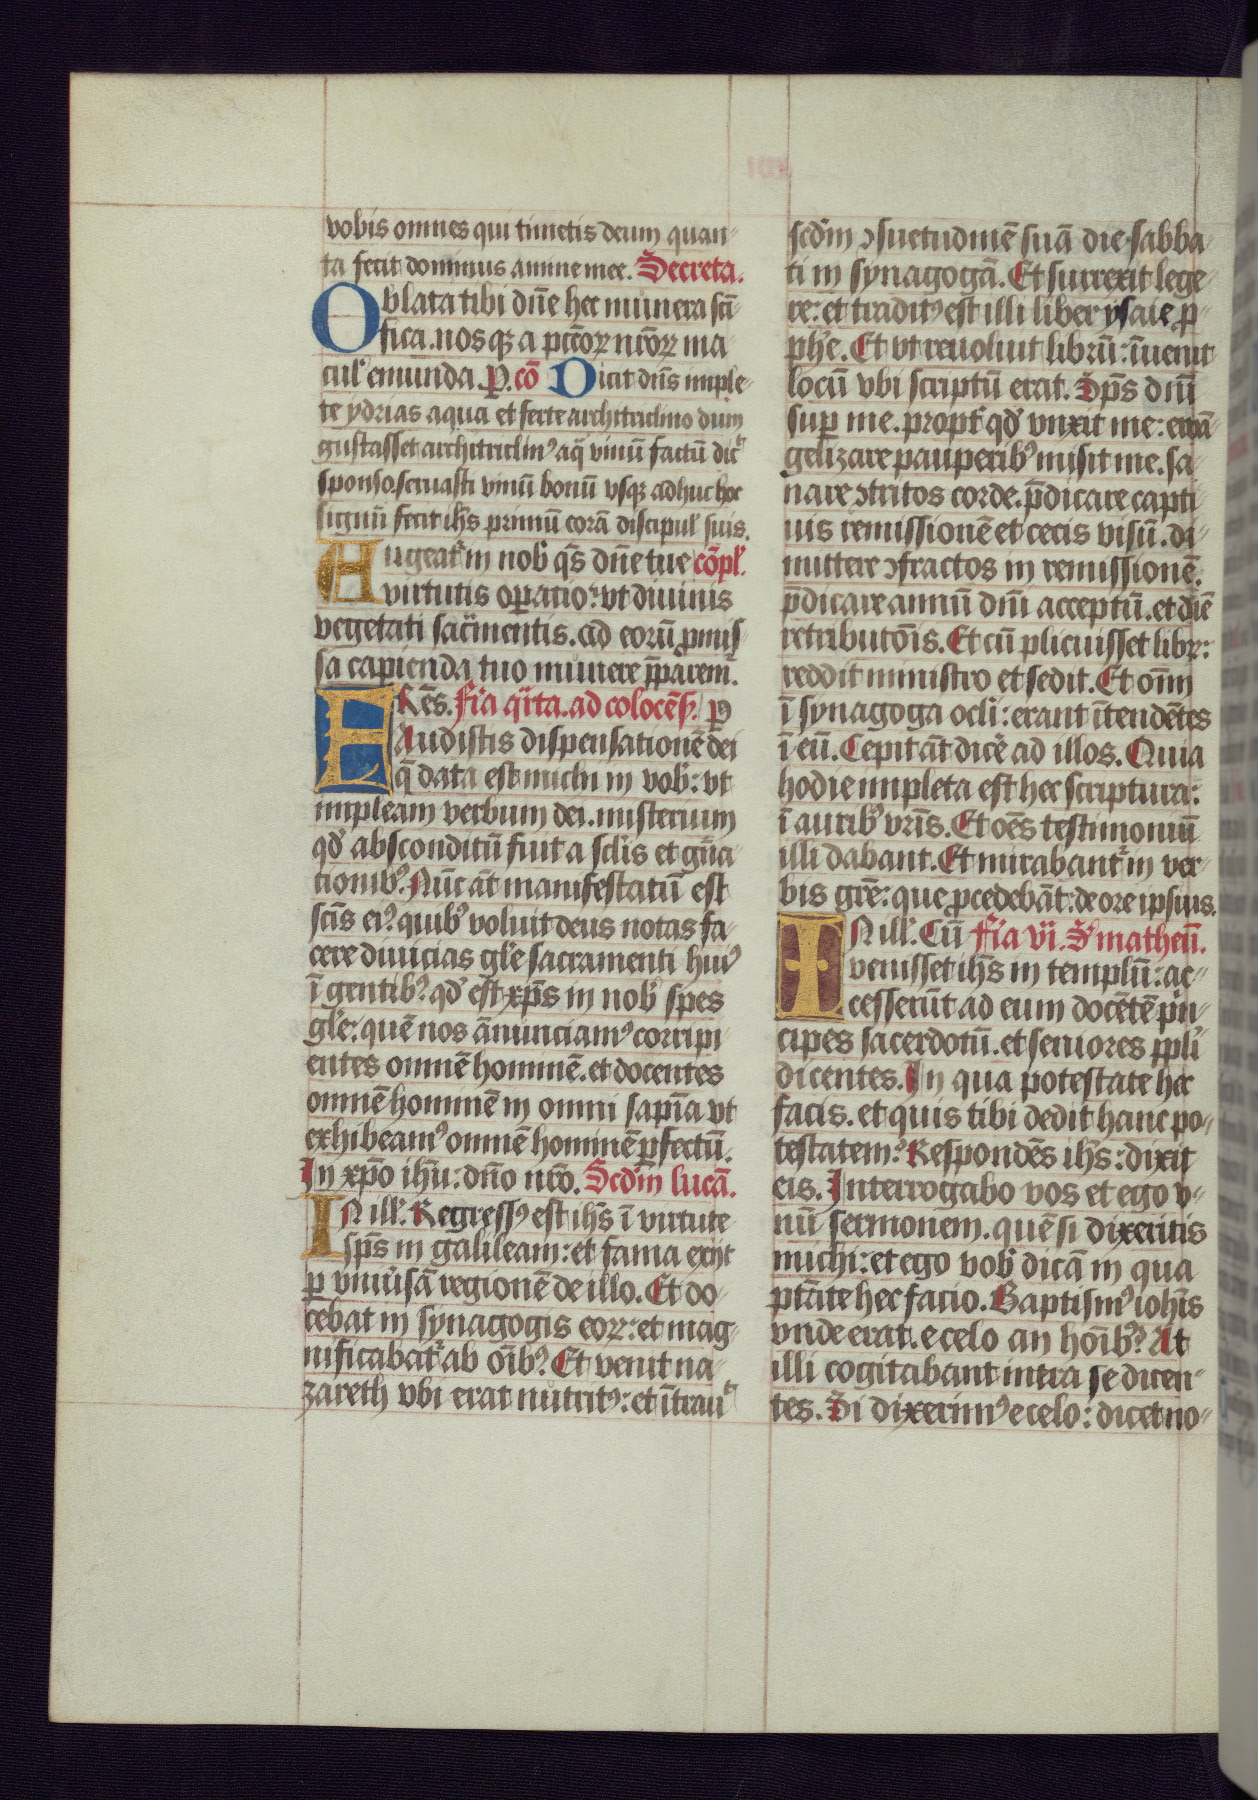 vobis omnes qui timetis deum quan-
ta fecit dominus anime mee. Secreta.
Oblata tibi dn̄e hec munera sc̄i
fica. nosqꝫ a pcc̄orꝝ nr̄orꝝ ma
cul' emunda. P. cō Dicit dn̄s imple-
te ydrias aqua et ferte architriclino dum
gustasset architriclin' aq̄ vinū factū dic̄
sponso. seruasti vinū bonū vsqꝫ adhuc hoc
signū fecit ih̄s primū corā discipul' suis.
Augeat' in nob' q̄s dn̄e tue cōpl'.
virtutis oꝑatio: vt diuinis
vegetati sac̄mentis. ad eorū ꝓmis-
sa capienda tuo munere p̄parem'.
FRēs. Fīa qr̄ta. ad colocēs'. P
Audistis dispensationē dei
q̄ data est michi in vob': vt
impleam verbum dei. misterium
qd' absconditū fuit a sclīs et gn̄a
tionib'. Nūc āt manifestatū est
sc̄is ei' quib' voluit deus notas fa-
cere diuicias gl'e sacramenti hui'
ī gentib'. qd' est xp̄s in nob' spes
gl'e: quē nos ānunciam' corripi-
entes omnē hominē. et docentes
omnē hominē in omni sapīa vt
exhibeam' omnē hominē ꝑfectū.
In xp̄o ih̄u: dn̄o nr̄o. Scd'm lucā.
IN ill'. Regress' est ih̄s ī virtute
sp̄s in galileam: et fama exijt
ꝑ vniu'sā regionē de illo. Et do-
cebat in synagogis eorꝝ: et mag-
nificabat' ab oīb'. Et venit na-
zareth vbi erat nutrit': et ītrau'
scd'm ↄsuetudinē suā die sabba-
ti in synagogā. Et surrexit lege-
re: et tradit' est illi liber ysaie ꝓ-
ph'e. Et vt reuoluit librū: īuenit
locū vbi scriptū erat. Sp̄s dn̄i
suꝑ me. propt' qd' vnxit me: euā-
gelizare pauperib' misit me. sa-
nare ↄtritos corde. p̄dicare capti-
uis remissionē et cecis visū. di-
mittere ↄfractos in remissionē.
p̄dicare annū dn̄i acceptū. et diē
retributōis. Et cū plicuisset libr̄:
reddit ministro et sedit. Et oīm
ī synagoga oclī: erant ītendētes
ī eū. Cepit āt dic'e ad illos. Quia
hodie impleta est hec scriptura:
ī aurib' vr̄is. Et oēs testimoniū
illi dabant. Et mirabant' in ver-
bis gr̄e: que ꝓcedebāt: de ore ipsius.
IN ill'. Cū Fīa vi. S' matheū.
venisset ih̄s in templū: ac-
cesserūt ad eum docētē pn̄-
cipes sacerdotū. et seniores ppl'i
dicentes. In qua potestate hec
facis. et quis tibi dedit hanc po-
testatem? Respondēs ih̄s: dixit
eis. Interrogabo vos et ego v-
nū sermonem. quē si dixeritis
michi: et ego vob' dicā in qua
ptāte hec facio. Baptism' ioh̄is
vnde erat. e celo an hoīb'? At
illi cogitabant intra se dicen-
tes. Si dixerim' e celo: dicet no-